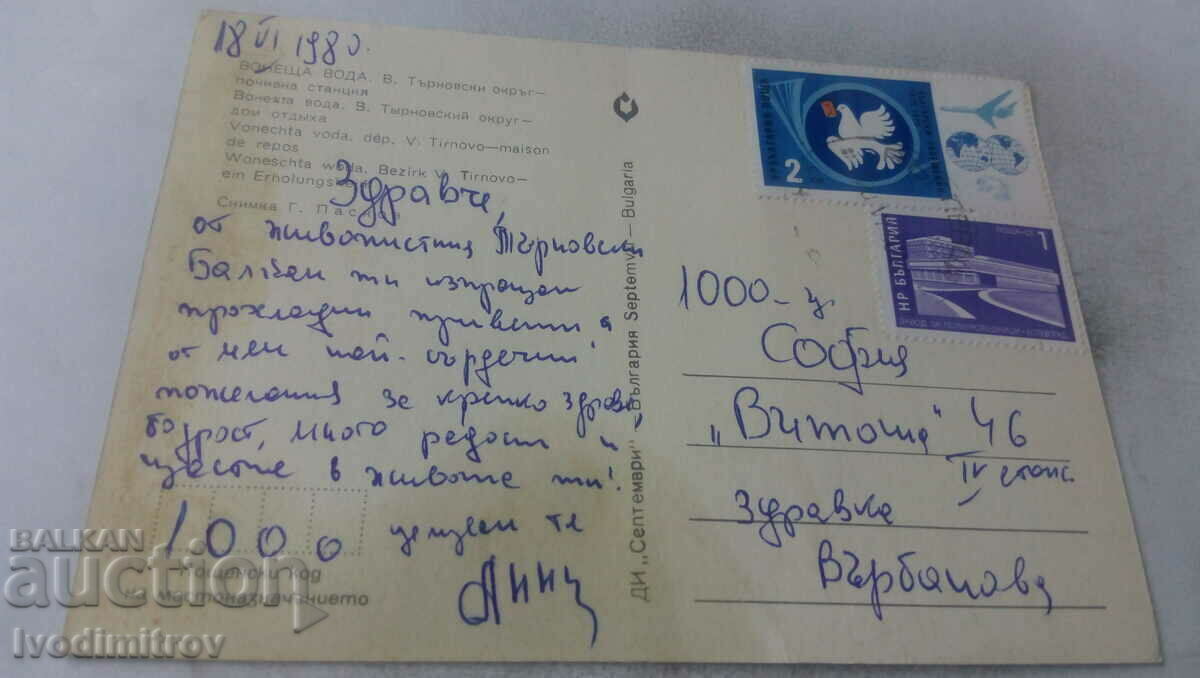 18 VI 1980.
ВОНЕЩА ВОДА. В. Търновски окръг —
почивна станция
Вонешта вода. В. Тырновский округ —
дом отдыха
Vonechta voda, dép. V. Tirnovo — maison
de repos
Woneschta woda, Bezirk V. Tirnovo —
ein Erholungs
Снимка Г.
Здравче,
от живописния Търновски
Балкан ти изпращам
прохладни привети и
от мен най-сърдечни
пожелания за крепко здраве,
бодрост, много радост и
щастие в живота ти!
целувам те
Ани
1000
Пощенски код
на местоназначението
ДИ „Септември" — България Septemvri — Bulgaria
НР БЪЛГАРИЯ ПОЩА
2
НР БЪЛГАРИЯ
1
1000 - ц.
София
„Витоша" 46
IV етаж.
Здравка
Върбанова
BALKAN
auction
Ivodimitrov